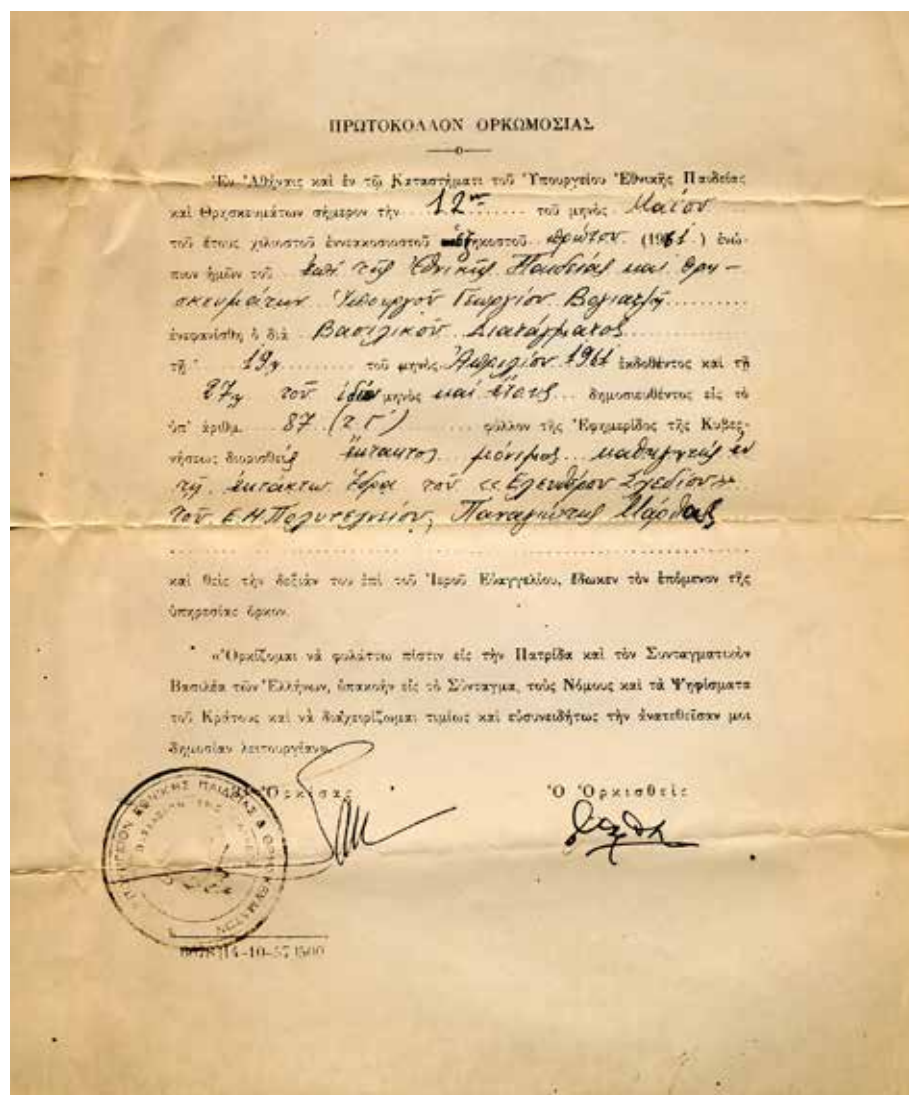 ΠΡΩΤΟΚΟΛΛΟΝ ΟΡΚΩΜΟΣΙΑΣ
Ἐν Ἀθήναις καὶ ἐν τῷ Καταστήματι τοῦ Ὑπουργείου Ἐθνικῆς Παιδείας
καὶ Θρησκευμάτων σήμερον τὴν 12ην τοῦ μηνὸς Μαΐου
τοῦ ἔτους χιλιοστοῦ ἐννεακοσιοστοῦ ἑξηκοστοῦ πρώτου (1961) ἐνώ-
πιον ἡμῶν τοῦ ἐπὶ τῆς Ἐθνικῆς Παιδείας καὶ Θρη-
σκευμάτων Ὑπουργοῦ Γεωργίου Βογιατζῆ
ἐνεφανίσθη ὁ διὰ Βασιλικοῦ Διατάγματος
τῇ 19ῃ τοῦ μηνὸς Ἀπριλίου 1961 ἐκδοθέντος καὶ τῇ
27ῃ τοῦ ἰδίου μηνὸς καὶ ἔτους δημοσιευθέντος εἰς τὸ
ὑπ' ἀριθμ. 87 (τ Γ') φύλλον τῆς Ἐφημερίδος τῆς Κυβερ-
νήσεως διορισθεὶς ἔκτακτος μόνιμος καθηγητὴς ἐν
τῇ ἐκτάκτῳ ἕδρᾳ τοῦ «Ἐλευθέρου Σχεδίου»
τοῦ Ε.Μ Πολυτεχνείου, Παναγιώτης
καὶ θεὶς τὴν δεξιάν του ἐπὶ τοῦ Ἱεροῦ Εὐαγγελίου, ἔδωκεν τὸν ἑπόμενον τῆς
ὑπηρεσίας ὅρκον.
«Ὁρκίζομαι νὰ φυλάττω πίστιν εἰς τὴν Πατρίδα καὶ τὸν Συνταγματικὸν
Βασιλέα τῶν Ἑλλήνων, ὑπακοὴν εἰς τὸ Σύνταγμα, τοὺς Νόμους καὶ τὰ Ψηφίσματα
τοῦ Κράτους καὶ νὰ διαχειρίζωμαι τιμίως καὶ εὐσυνειδήτως τὴν ἀνατεθεῖσαν μοι
δημοσίαν λειτουργίαν»
Ὁ Ὁρκίσας Ὁ Ὁρκισθεὶς
ΥΠΟΥΡΓΕΙΟΝ ΕΘΝΙΚΗΣ ΠΑΙΔΕΙΑΣ & ΘΡΗΣΚΕΥΜΑΤΩΝ